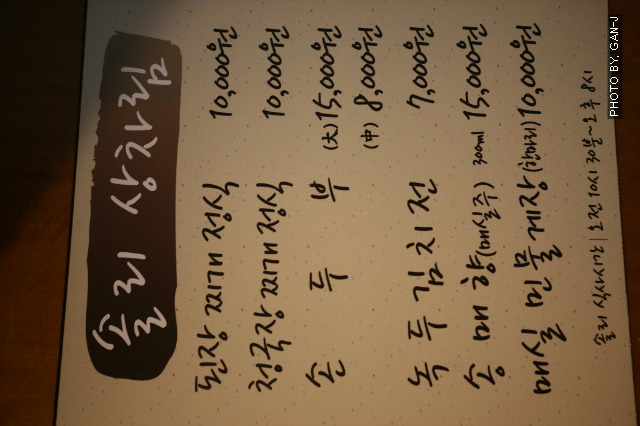 솔리 상차림
된장 찌개 정식 10,000원
청국장 찌개 정식 10,000원
손 두 부 (大) 15,000원
(中) 8,000원
녹 두 김 치 전 7,000원
송 매 향 (매실주) 300ml 15,000원
매실 민물 게장 (한마리) 10,000원
솔리 식사시간 | 오전 10시 30분~오후 8시
PHOTO BY, GAN-J